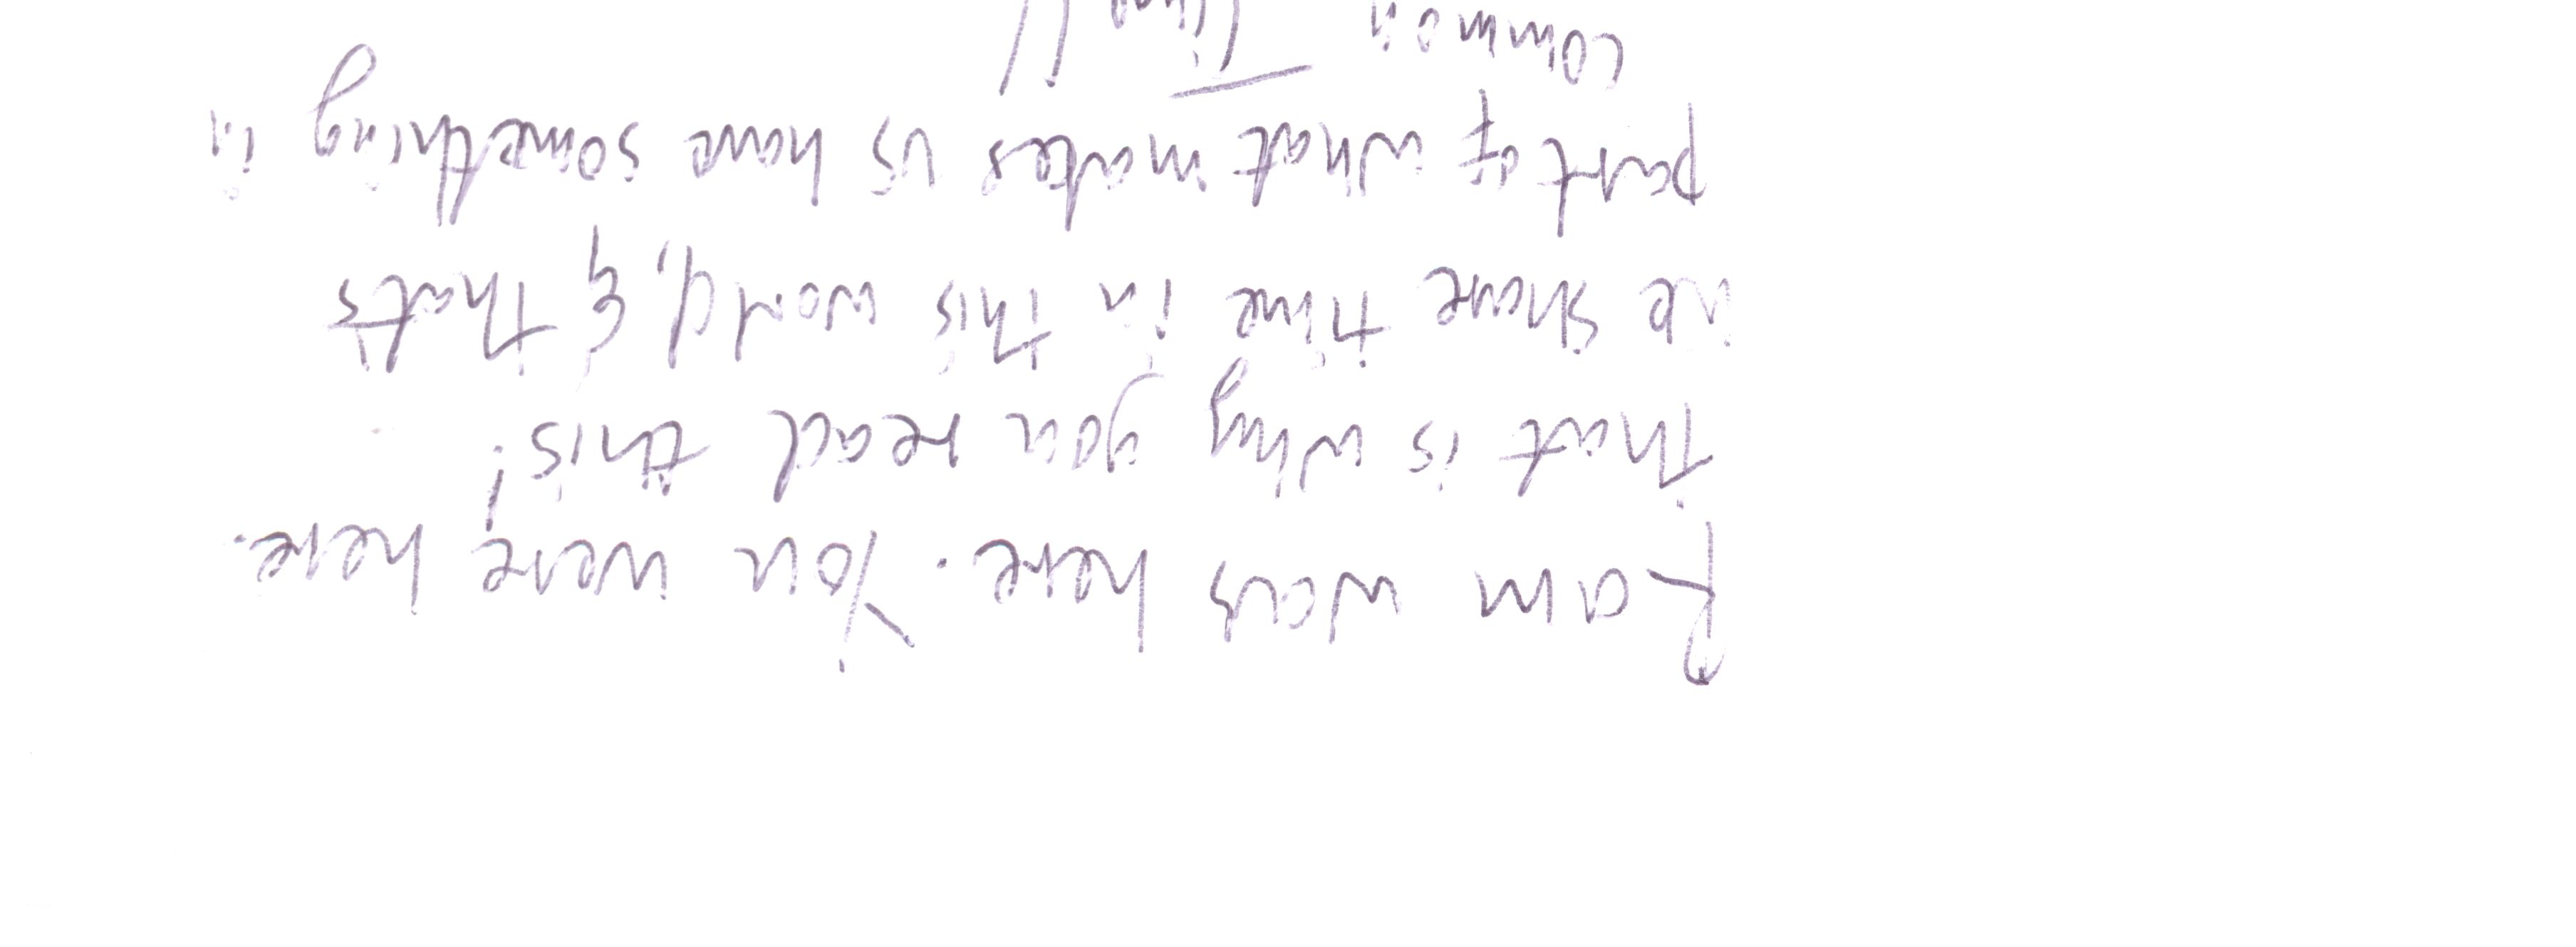 Ram was here. You were here.
That is why you read this!
we share time in this world, & thats
part of what makes us have something in
common